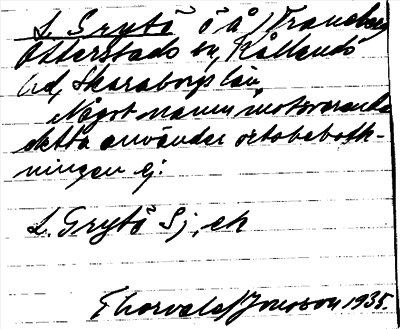 L. Grytö ö å/Traneberg
Otterstads sn, Kållands
hd, Skaraborgs län
Något namn motsvarande
detta använder ortsbefolk-
ningen ej.
L. Grytö Sj. ek
Thorvald Jonsson 1935